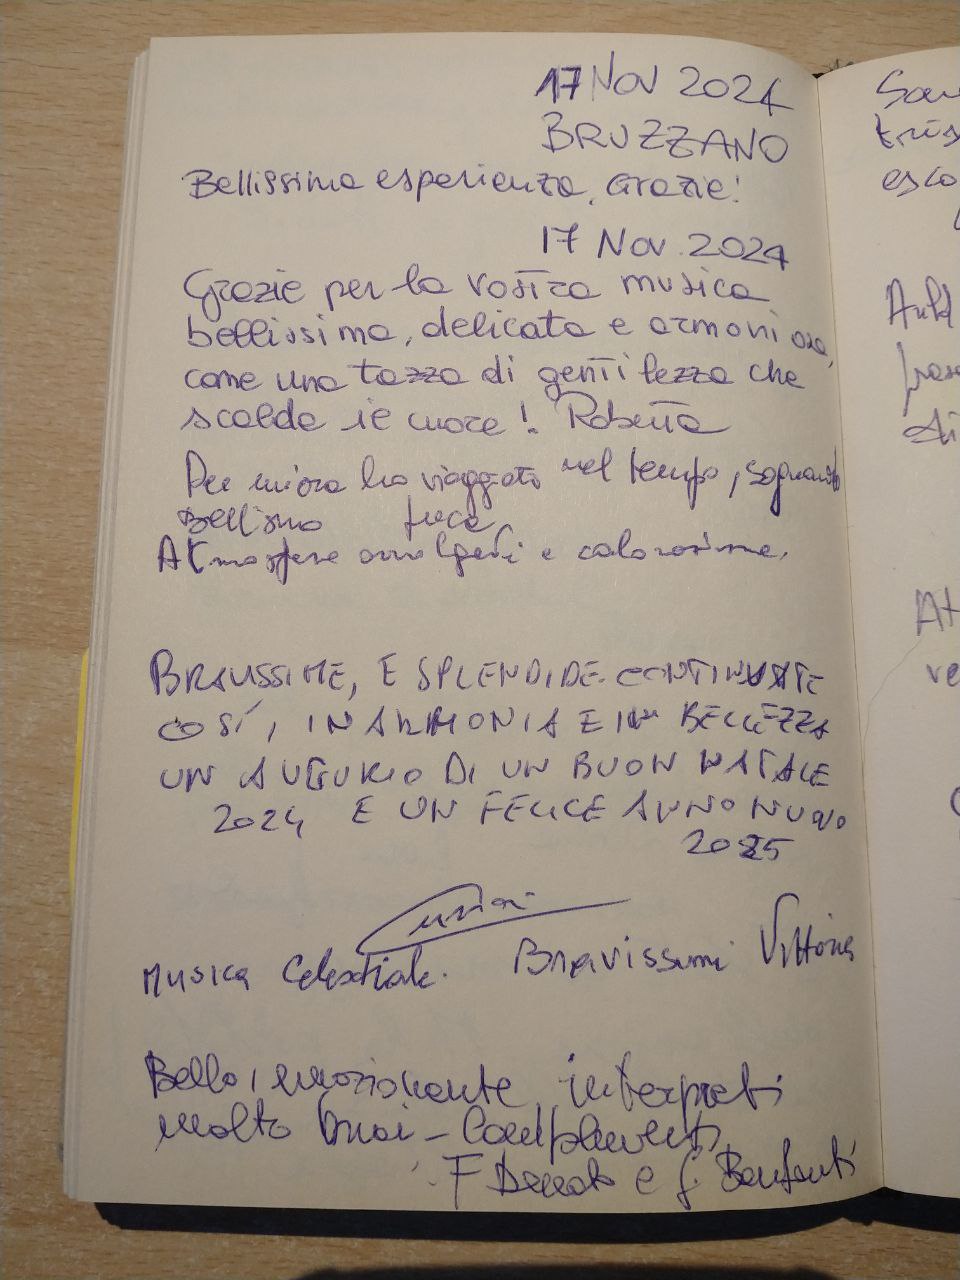 17 Nov 2024
BRUZZANO
Bellissima esperienza. Grazie!
17 Nov. 2024
Grazie per la vostra musica
bellissima, delicata e armoniosa,
come una tazza di gentilezza che
scalda il cuore! Roberta
Per un'ora ho viaggiato nel tempo, sognando
Bellismo
Atmosfere avvolgenti e calorosime.
BRAVISSIME, E SPLENDIDE. CONTINUATE
COSÍ, IN ARMONIA E IN BELLEZZA
UN AUGURIO DI UN BUON NATALE
2024 E UN FELICE ANNO NUOVO
2025
Musica Celestiale. Bravissimi Vittoria
Bello, emozionante, interpreti
molto bravi - Complimenti
F e G. Bonfanti
Sou
tris
esco
Auld
At
ve